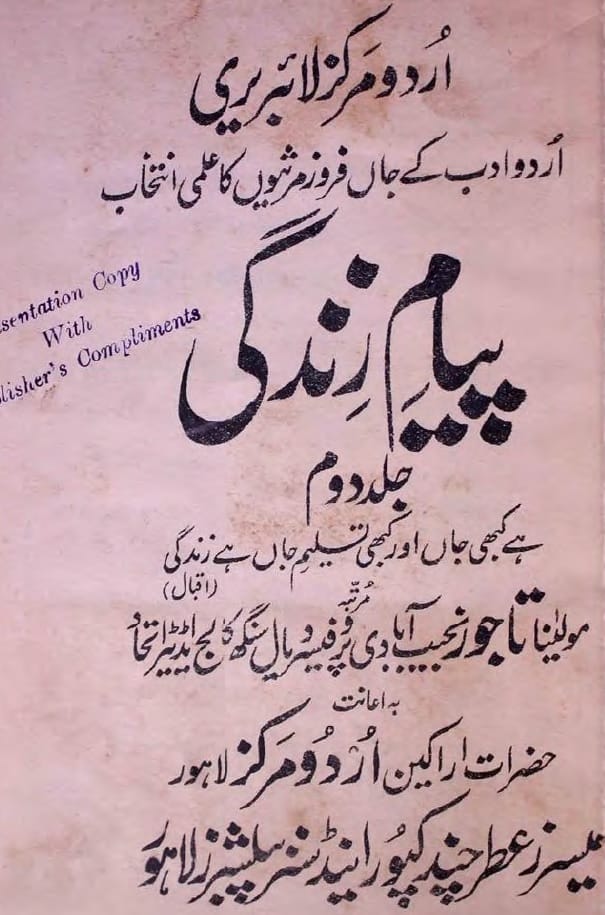 اُردو مرکز لائبریری
اُردو ادب کے جاں فروز مرثیوں کا علمی انتخاب
sentation Copy
With
lisher's Compliments
پیامِ زِندگی
جلد دوم
ہے کبھی جاں اور کبھی تسلیمِ جاں ہے زندگی
(اقبال)
مُرتّبہ
مولیٰنا تاجور نجیب آبادی پروفیسر دیال سنگھ کالج ایڈیٹر اتحاد
بہ اعانت
حضرات اراکین اُردُو مَرکز لاہور
میسرز عطر چند کپور اینڈ سنز پبلشرز لاہور